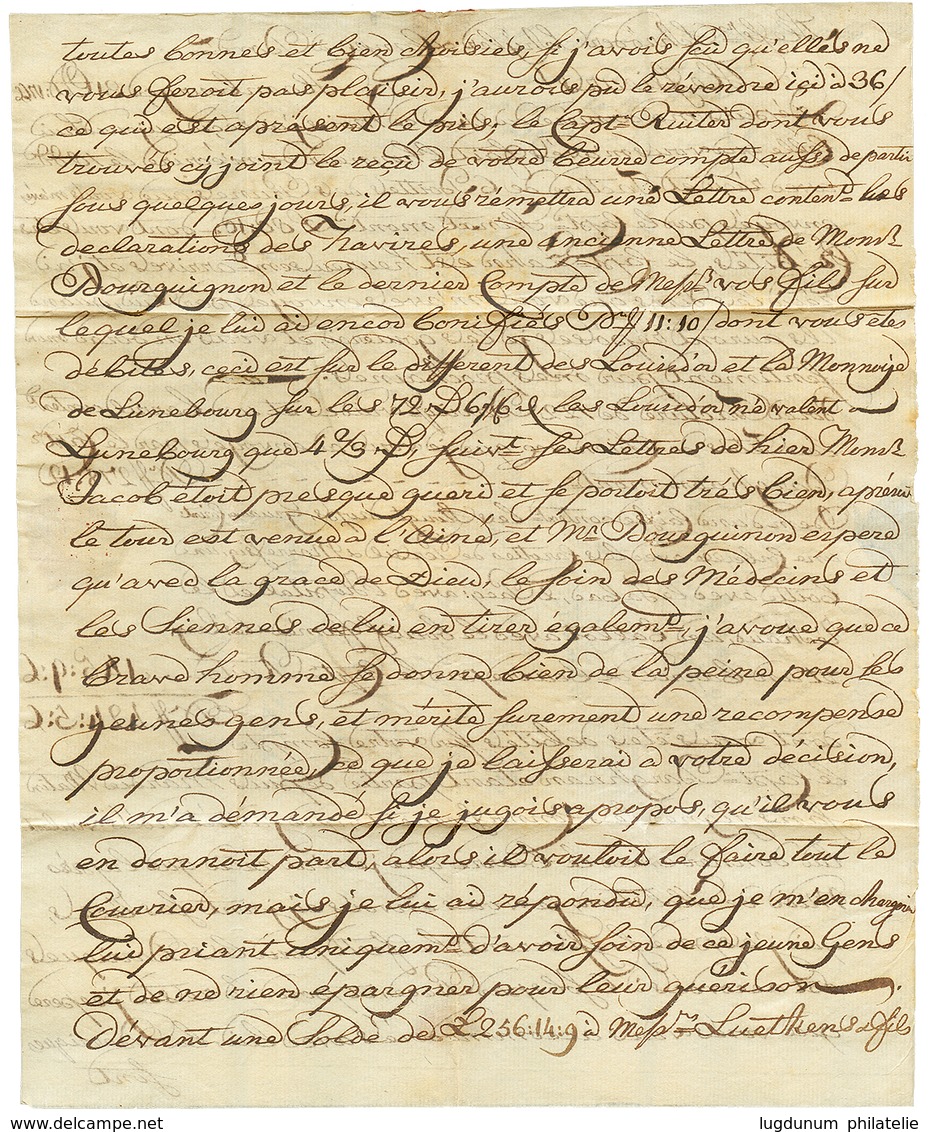 toutes bonnes et bien choisies, si j'avois sçû qu'elles ne
vous feroit pas plaisir, j'aurois pû le révendre içi à 36/
ce qui est apresent le pris, le Capt.^n Ruiter dont vous
trouvés cy joint le reçu de votre beurre compte aussi de partir
sous quelques jours, il vous rémettra une Lettre conten.^t les
declarations des Navires, une ancienne Lettre de Mons.^r
Bourguignon et le dernier Compte de Mess.^rs vos fils sur
lequel je lui ai encor bonifiés 11:10/ dont vous etes
débités, ceci est sur le different des Louisd'or et la Monnoije
de Lunebourg sur les 72 les Louisd'or né valent a
Lunebourg que 4 2/3 suiv.^t ses Lettres de hier Mons.^r
Jacob étoit presque gueri et se portoit trés bien, aprésent
le tour est venue a l'Ainé, et M.^r Bourguinon espere
qu'avec la grace de Dieu, le soin des Médecins et
les Siennes de lui en tirer égalem.^t, j'avoue que ce
brave homme se donne bien de la peine pour les
jeunes gens, et mérite surement une recompense
proportionnée, ce que je laisserai a votre décision,
il m'a démandé si je jugois apropos, qu'il vous
en donnoit part, alors il vouloit le faire tout le
Courrier, mais je lui ai répondu, que je m'en chargerois
lui priant uniquem.^t d'avoir soin de ce jeune Gens
et de ne rien épargner pour leur guérison.
Dévant une Solde de £ 256:14:9 à Mess.^rs Luetkens & fils
www.delcampe.net
lugdunum philatelie